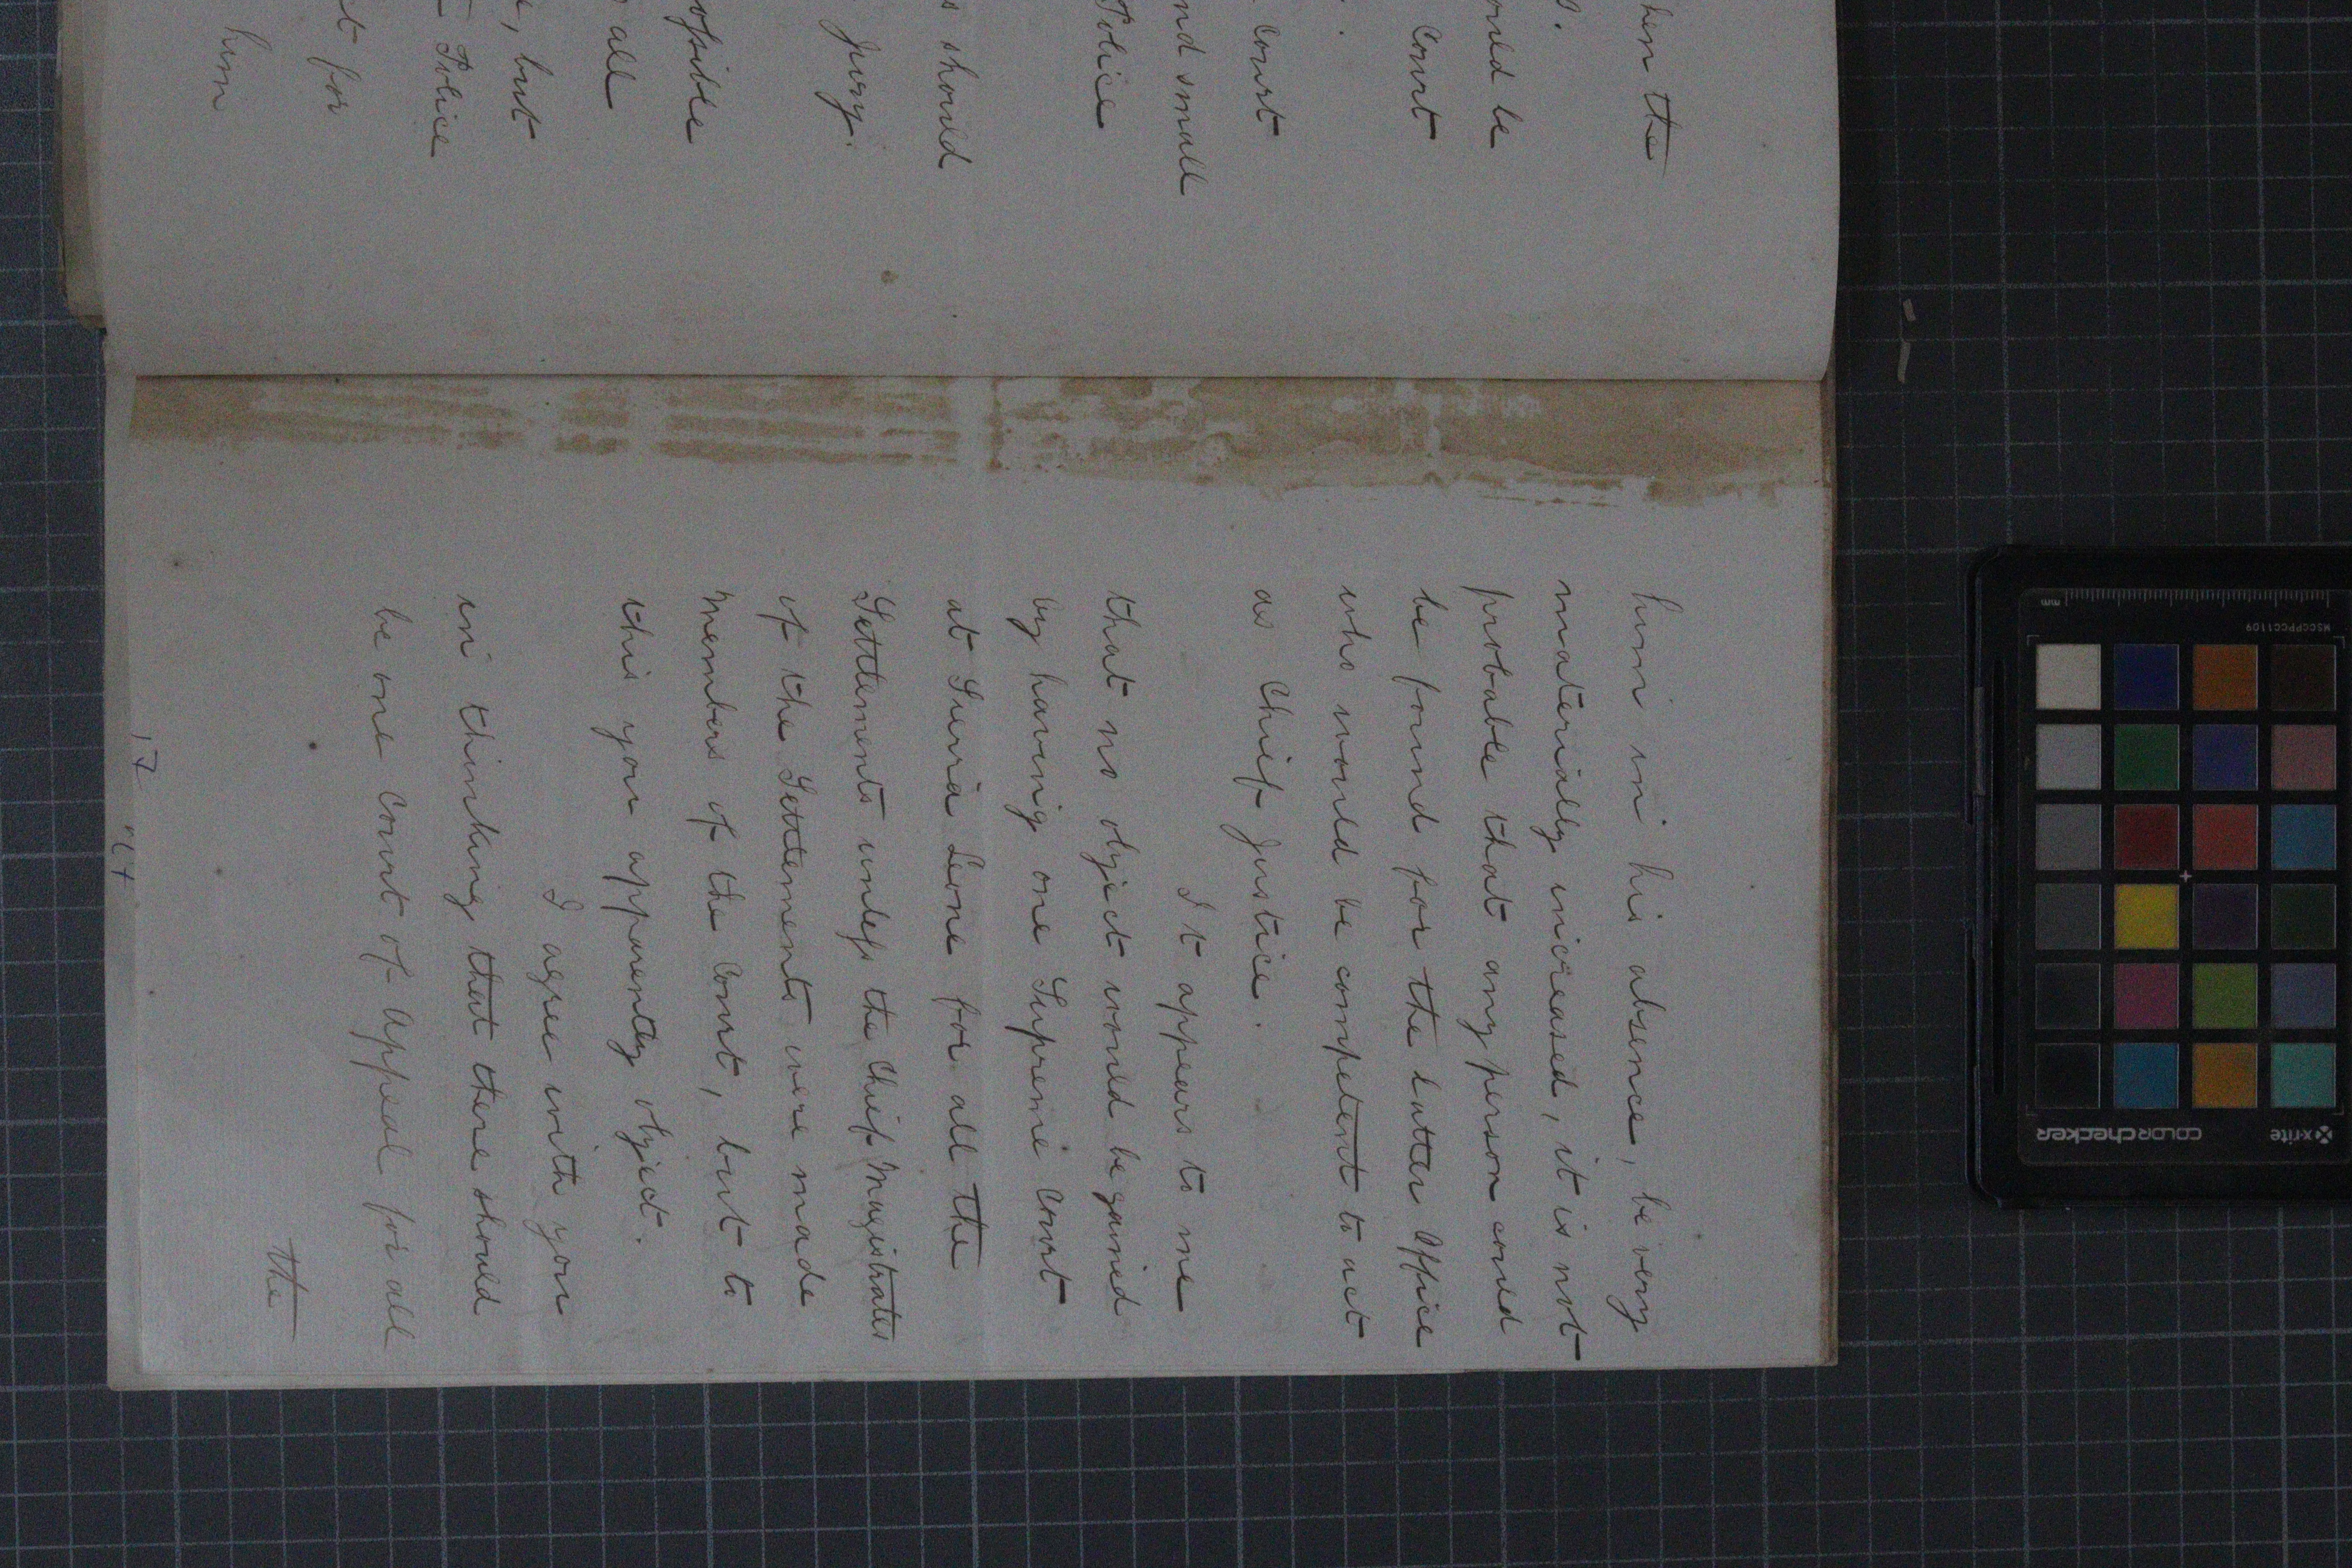 hen the
ould be
Court
Court
nd small
Police
s should
jury.
ofsible
all
, but
Police
t for
him
him in his absence, be very
materially increased, it is not
probable that any person could
be found for the latter Office
who would be competent to act
as Chief Justice.
It appears to me
that no object would be gained
by having one Supreme Court
at Sierra Leone for all the
Settlements unlefs the Chief Magistrates
of the Settlements were made
Members of the Court, but to
this you apparently object.
I agree with you
in thinking that there should
be one Court of Appeal for all
the
x-rite
colorchecker
MSCCPPCC1109
mm